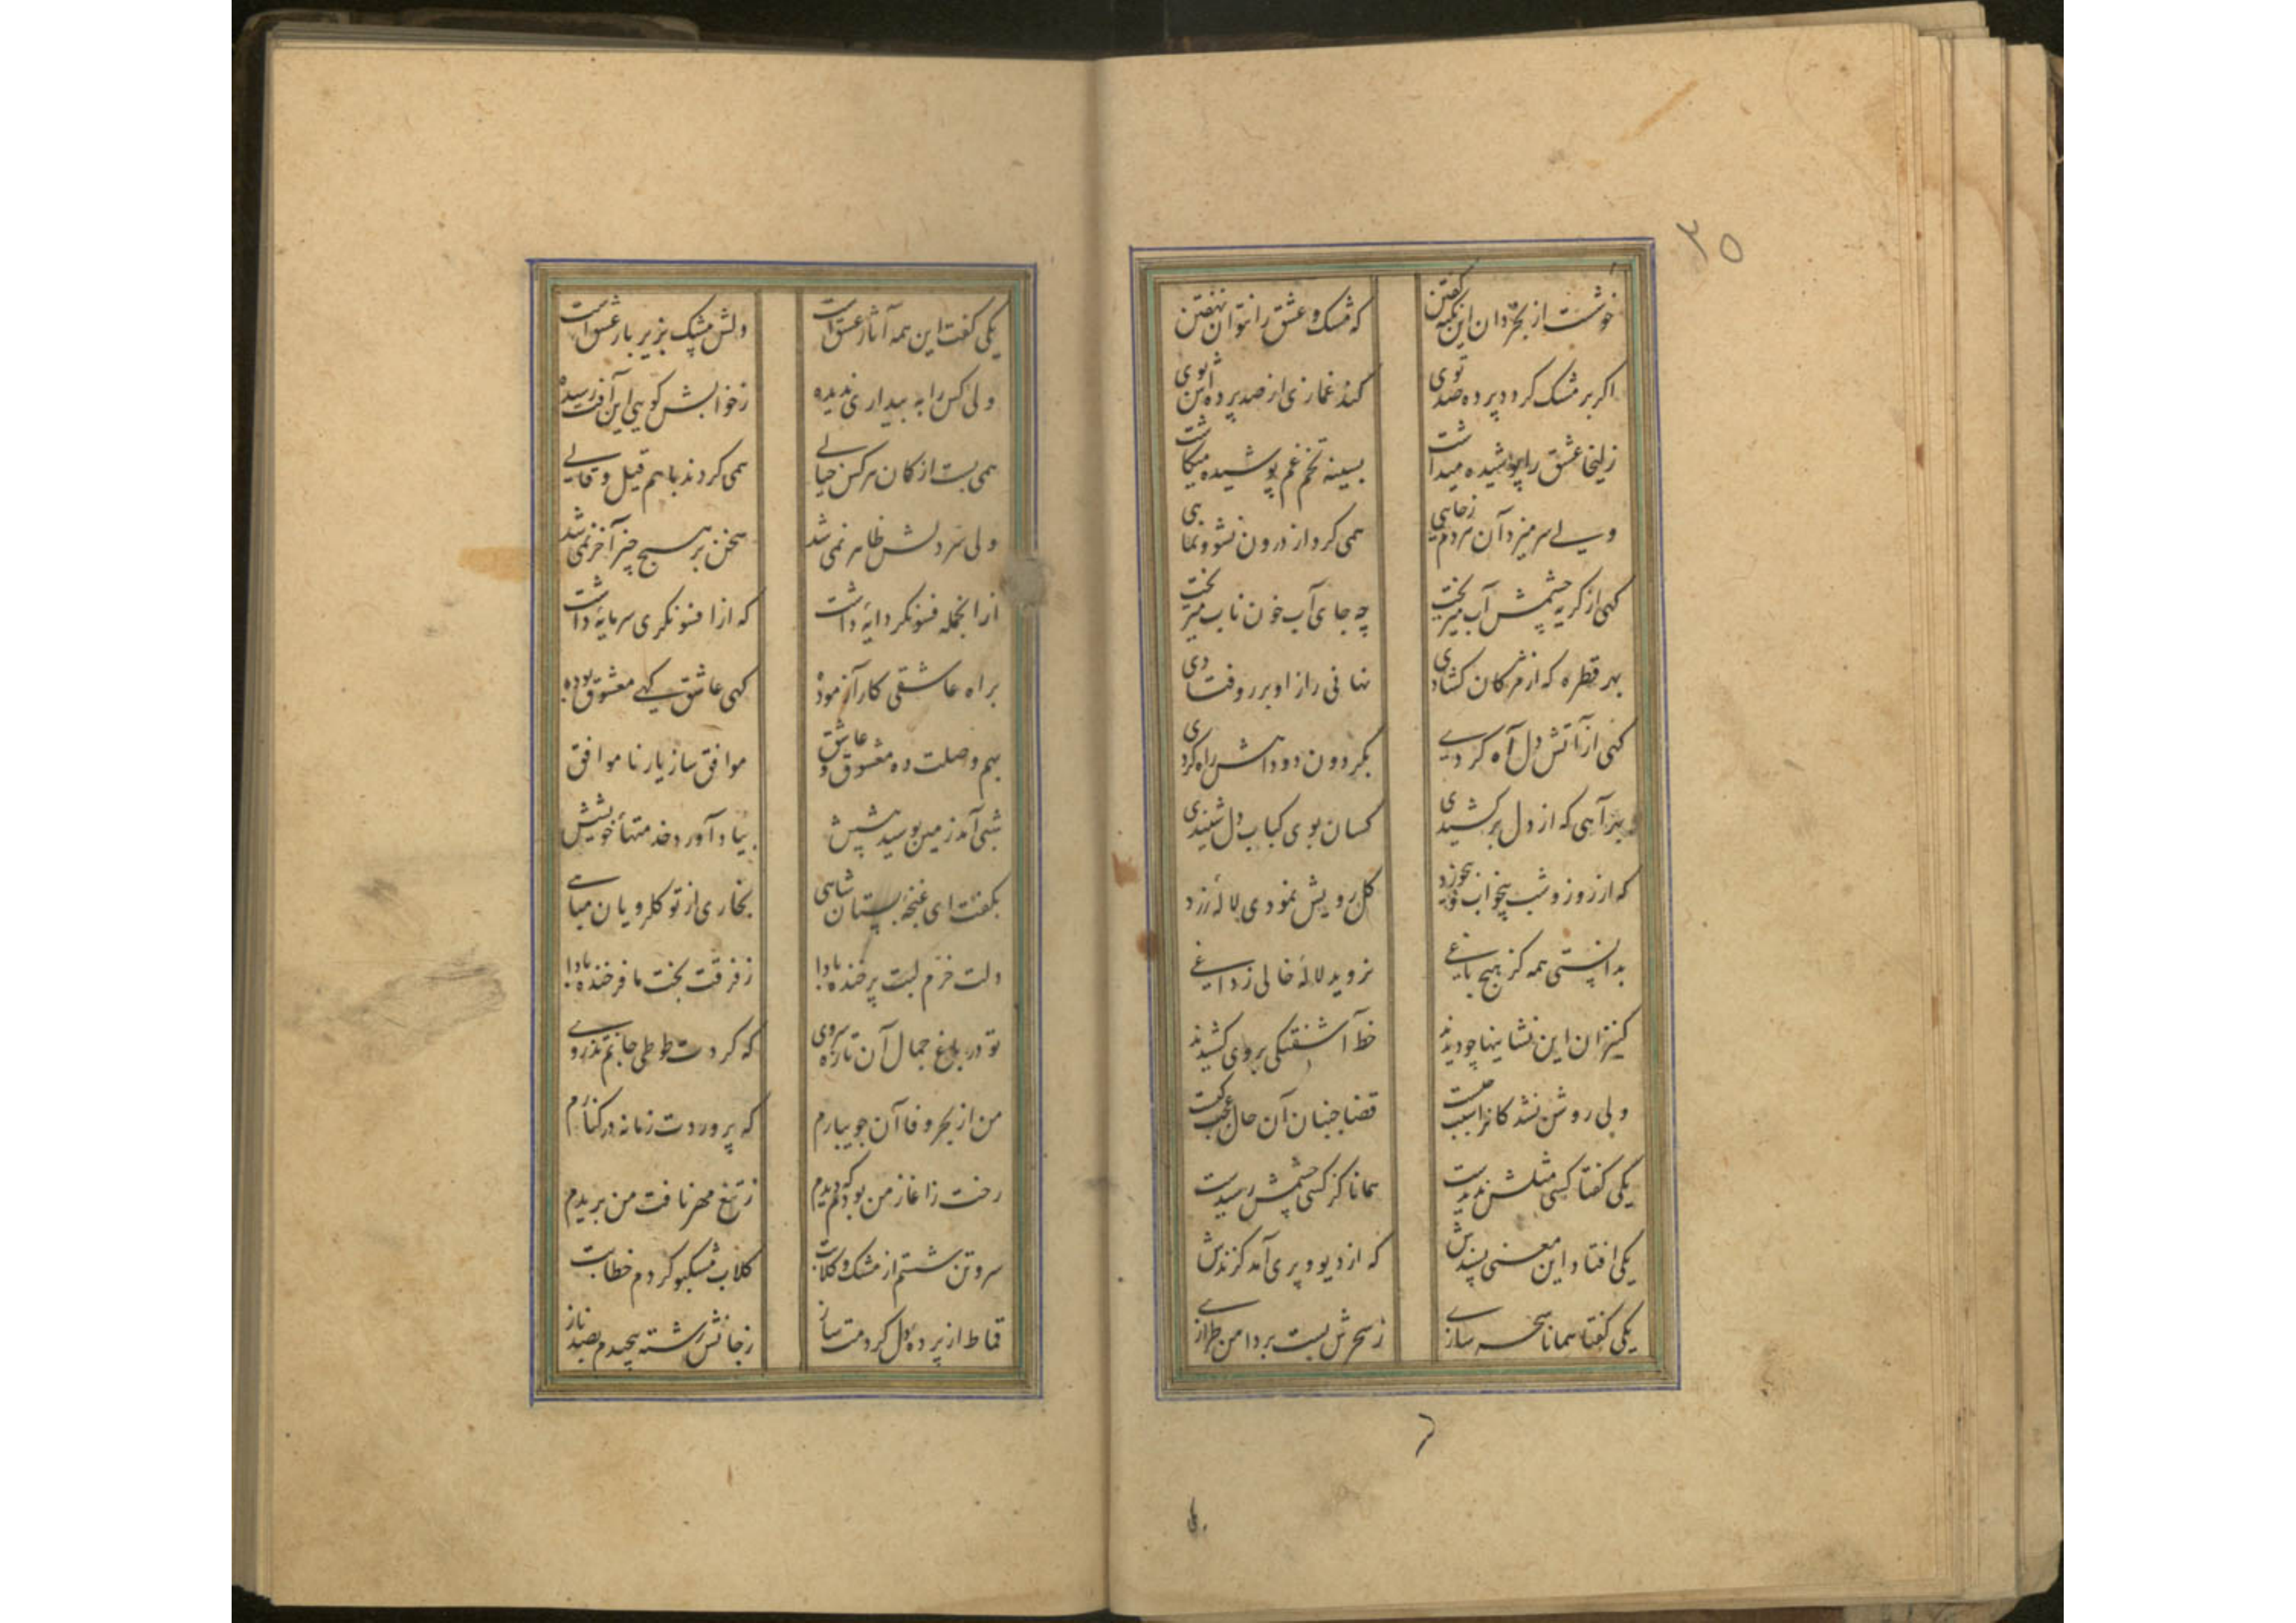 ۳۵
خوشت از بخردان این نکته گفتن که مشک و عشق را نتوان نهفتن
اگر بر مشک گردد پرده صد توی کند غمازی از صد پرده اش بوی
زلیخا عشق را پوشیده میداشت بسینه تخم غم پوشیده میکاشت
ولی سر میزد آن هر دم ز جایی همی کرد از درون نشو و نمایی
گهی از گریه چشمش آب میریخت چه جای آب خون ناب میریخت
بهر قطره که از مژگان کشادی نهانی راز او بر رو فتادی
گهی از آتش دل آه کردی بگردون دود آهش راه کردی
بهر آهی که از دل بر کشیدی کسان بوی کباب دل شنیدی
که از روز و شب بیخواب و بیخورد گل رویش نمودی لاله زرد
بدانستی همه کز هیچ باغی نروید لاله خالی ز داغی
کنیزان این نشانیها چو دیدند خط آشفتگی بروی کشیدند
ولی روشن نشد کانرا سبب چیست قضا جنبان آن حال عجب کیست
یکی گفتا کسی مثلش ندیدست همانا کز کسی چشمش رسیدست
یکی افتاد این معنی پسندش که از دیو و پری آمد گزندش
یکی گفتا همانا سحر سازی ز سحرش بست بر دامن طرازی
یکی گفت این همه آثار عشق است دلش بیشک بزیر بار عشق است
ولی کس را به بیداری ندیده ز خوابش گویی این آفت رسیده
همی بست از گمان هر کس خیالی همی کردند با هم قیل و قالی
ولی سر دلش ظاهر نمی شد سخن بر هیچ چیز آخر نمی شد
از انجمله فسونگر دایهٔ داشت که از افسونگری سرمایهٔ داشت
براه عاشقی کار آزموده گهی عاشق گهی معشوق بوده
بهم وصلت ده معشوق و عاشق موافق ساز یار نا موافق
شبی آمد زمین بوسید پیشش بیاد آورد خدمتهأ خویشش
بگفت ای غنچهٔ بستان شاهی بخاری از تو گلرویان مباهی
دلت خرم لبت پر خنده بادا ز فرقت بخت ما فرخنده بادا
تو در باغ جمال آن تازه سروی که گردت طوطی جانم تذروی
من از بحر وفا آن جویبارم که پروردت زمانه در کنارم
رخت ز آغاز من بودم که دیدم ز تیغ مهر نافت من بریدم
سر و تن شستم از مشک و گلابت گلاب مشکبو کردم خطابت
قماط از پرده دل کردمت ساز ز جانش رشته پیچیدم بصد ناز